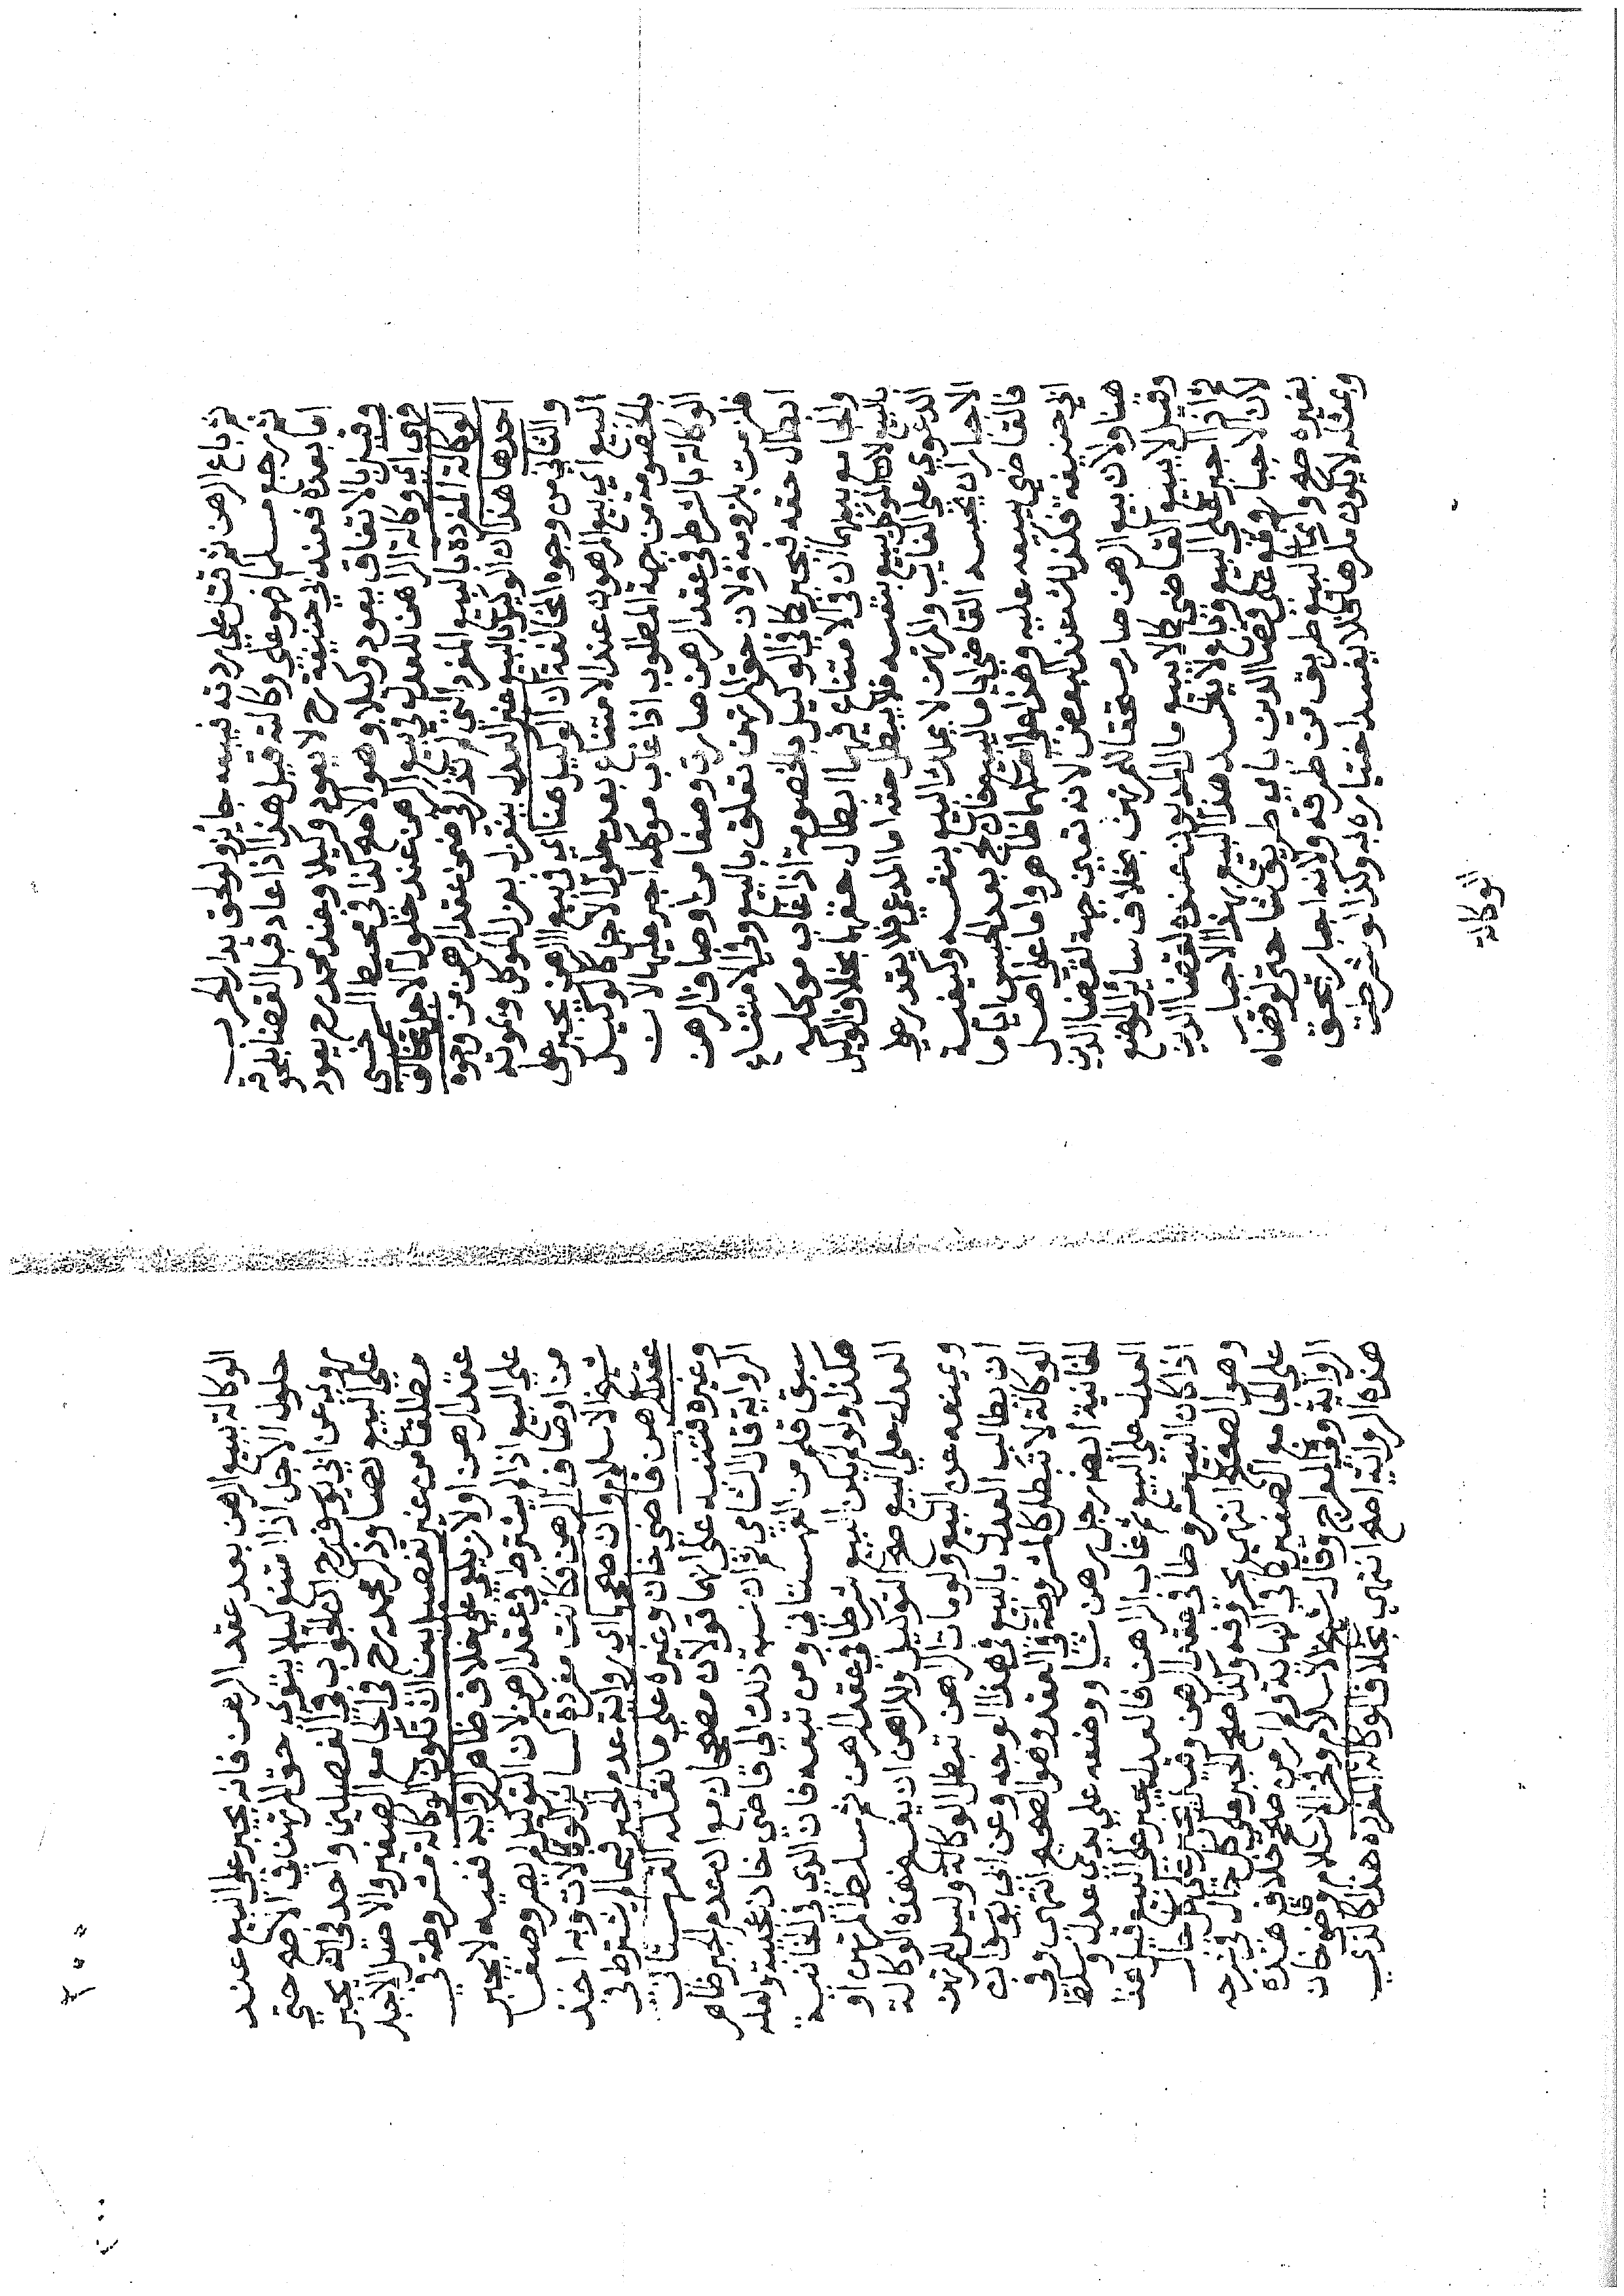 ثم باع الرهن ثم قتل علي ردته فبيعه جايز ولو لحق بدار الحرب
ثم رجع مسلما فهو علي وكالته قيل هذا اذا عاد قبل القضا بلحوقه
اما بعده فعند ابي حنيفة رح لا يعود وكيلا وعند محمد رح يعود
وقيل بالاتفاق يعود وكيلا وهو الاصح كذا في محيط السرخسي
وهي اي وكالة الراهن للعدل في بيع الرهن عند حلول الاجل تخالف
الوكالة المفردة بالبيع المفرد التي لم تذكر في ضمن عقد الرهن من وجوه
احدها هذا ان الوكيل بالبيع غير العدل ينعزل بعزل الموكل وبموته
والثاني من وجوه المخالفة ان الوكيل هنا اي في بيع الرهن يجبر على
البيع اي بيع المرهون عند الامتناع بعد حلول الاجل كالوكيل
بالخصومة من جهة المطلوب اذا غاب موكله اجبر عليها لان
الوكالة بالشرط في عقد الرهن صارت وصفا من اوصاف الرهن
فلزمت بلزومه ولان حق المرتهن تعلق بالبيع وفي الامتناع
ابطال حقه فيجبر كما في الوكيل بالخصومة اذا غاب موكله
والجامع بينهما ان في الامتناع فيهما ابطال حقهما بخلاف الوكيل
بالبيع لان الموكل يبيع بنفسه فلا يبطل حقه اما المدعي فلا يقدر علي
الدعوي علي الغايب والمرتهن لا يملك البيع بنفسه وكيفية
الاجبار ان يحبسه القاضي اياما ليبيع فان لج بعد الحبس اياما
فالقاضي يبيعه عليه وهذا علي اصلهما ظاهر واما علي اصل
ابي حنيفة فكذلك عند البعض لانه تعين جهة لقضا الدين
هنا ولان بيع الرهن صار مستحقا للمرتهن بخلاف ساير المواضع
وقيل لا يبيع القاضي كما لا يبيع مال المديون عنده لقضا الدين
ثم اذا اجبر علي البيع وباع لا يفسد هذا البيع بهذا الاجبار
لان الاجبار وقع علي قضا الدين باي طريق شا حتي لو قضاه
بغيره صح وانما البيع طريق من طرقه ولانه اجبار بحق
وبمثله لا يكون مكرها فلا يفسد اختياره به وكذا لو شرطت
الوكالة
الوكالة ببيع الرهن بعد عقد الرهن فانه يجبر علي البيع عند
حلول الاجل اذا امتنع كيلا يتوي حق المرتهن في الاصح حتي
روي عن ابي يوسف رح ان الجواب في الفصلين واحد في انه يجبر
علي البيع ايضا وذكر محمد رح في الجامع الصغير والاصل الاجبار
مطلقا من غير تفصيل بين ان تكون الوكالة مشروطة في
عقد الرهن او لا زيلعي علي خلاف ظاهر الرواية ففيه لا يجبر
علي البيع اذا لم يشترط في عقد الرهن لان التوكيل لم يصر وصفا
من اوصاف الرهن فكانت مفردة كساير الوكالات وبه اخذ
شيخ الاسلام وان صححها اي رواية عدم الجبر فيما لم يشترط في
عقد الرهن قاضي خان وغيره علي ما نقله القهستاني
وغيره فتنبه علي انهما قولان مصححان مع ان عدم الجبر ظاهر
الرواية قال الشامي ثم ان نسبة ذلك الي قاضي خان عجيبة ولعله
سبق قلم من القهستاني ومن تبعه فان الذي في الخانية
هكذا ولو لم يكن البيع شرطا في عقد الرهن ثم سلط المرتهن او
العدل علي البيع صح التوكيل وللراهن ان يفسخ هذه الوكالة
ويمنعه عن البيع ولو مات الراهن تبطل الوكالة وليس للمرتهن
ان يطالب العدل بالبيع في هذا الوجه وعن ابي يوسف ان
الوكالة لا تبطل كالمشروطة في العقد وهو الصحيح انتهي وفي
الخانية ايضا رجل رهن شيا ووضعه علي يدي عدل وسلط
العدل علي البيع ثم غاب الراهن فالعدل يجبر علي البيع قيل هذا
اذا كان البيع مشروطا في عقد الرهن وقيل يجبر علي كل حال
وهو الصحيح انتهي بحروفه وكذا صحح الجبر علي كل حال في شرحه
علي الجامع الصغير كما في النهاية ولم ار من صحح خلاف هذه
الرواية وفي المعراج وقال شيخ الاسلام وفخر الاسلام وقاضي خان
هذه الرواية اصح انتهي بخلاف الوكالة المفردة هذا كالذي